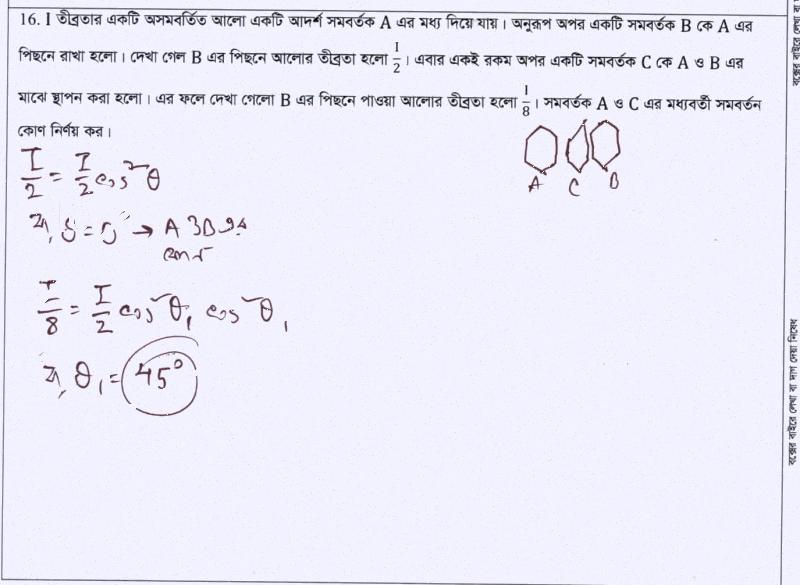 16. I তীব্রতার একটি অসমবর্তিত আলো একটি আদর্শ সমবর্তক A এর মধ্য দিয়ে যায়। অনুরূপ অপর একটি সমবর্তক B কে A এর
পিছনে রাখা হলো। দেখা গেল B এর পিছনে আলোর তীব্রতা হলো I/2। এবার একই রকম অপর একটি সমবর্তক C কে A ও B এর
মাঝে স্থাপন করা হলো। এর ফলে দেখা গেলো B এর পিছনে পাওয়া আলোর তীব্রতা হলো I/8। সমবর্তক A ও C এর মধ্যবর্তী সমবর্তন
কোণ নির্ণয় কর।
A C B
I/2 = I/2 cos²θ
বা, θ = 0° → A ও B এর
কোণ
I/8 = I/2 cos²θ₁ cos²θ₁
বা, θ₁ = 45°
বক্সের বাইরে লেখা বা দাগ দেয়া নিষেধ